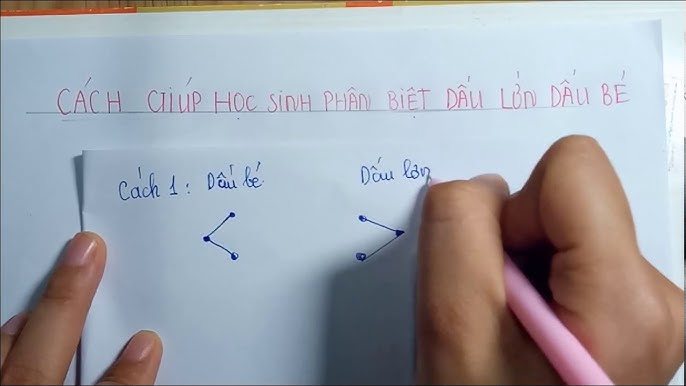 CÁCH GIÚP HỌC SINH PHÂN BIỆT DẤU LỚN DẤU BÉ
Cách 1: Dấu bé.
Dấu lớn
< >